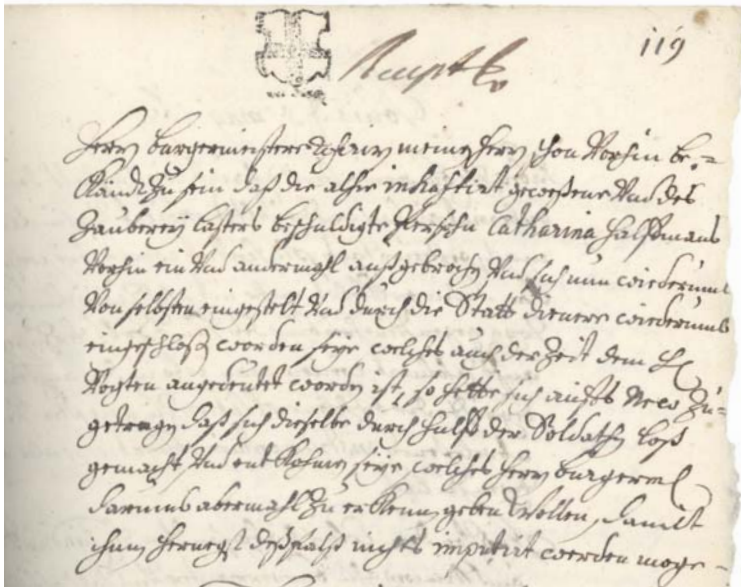 119
Herrn burgermeistere scheinen meine herrn schon vorhin be=
kandt zu sein daß die alhie inhafftirt gewesene und des
Zauberey lasters beschuldigte Persohn Catharina Halffmans
vorhin ein und andermahl außgebrochen und sich nun wiederumb
von selbsten eingestelt und durch die Statt dienere wiederumb
eingeschloßen worden seye welches auch der Zeit dem H
Vogten angedeutet worden ist, so hette sich auffs Newe zu=
getragen daß sich dieselbe durch hulff der Soldathen loß
gemacht und entkohmen seye welches herrn burgerm
darumb abermahl zu erkennen geben wollen, damit
ihnen hernegst deßfalß nichts imputirt werden moge